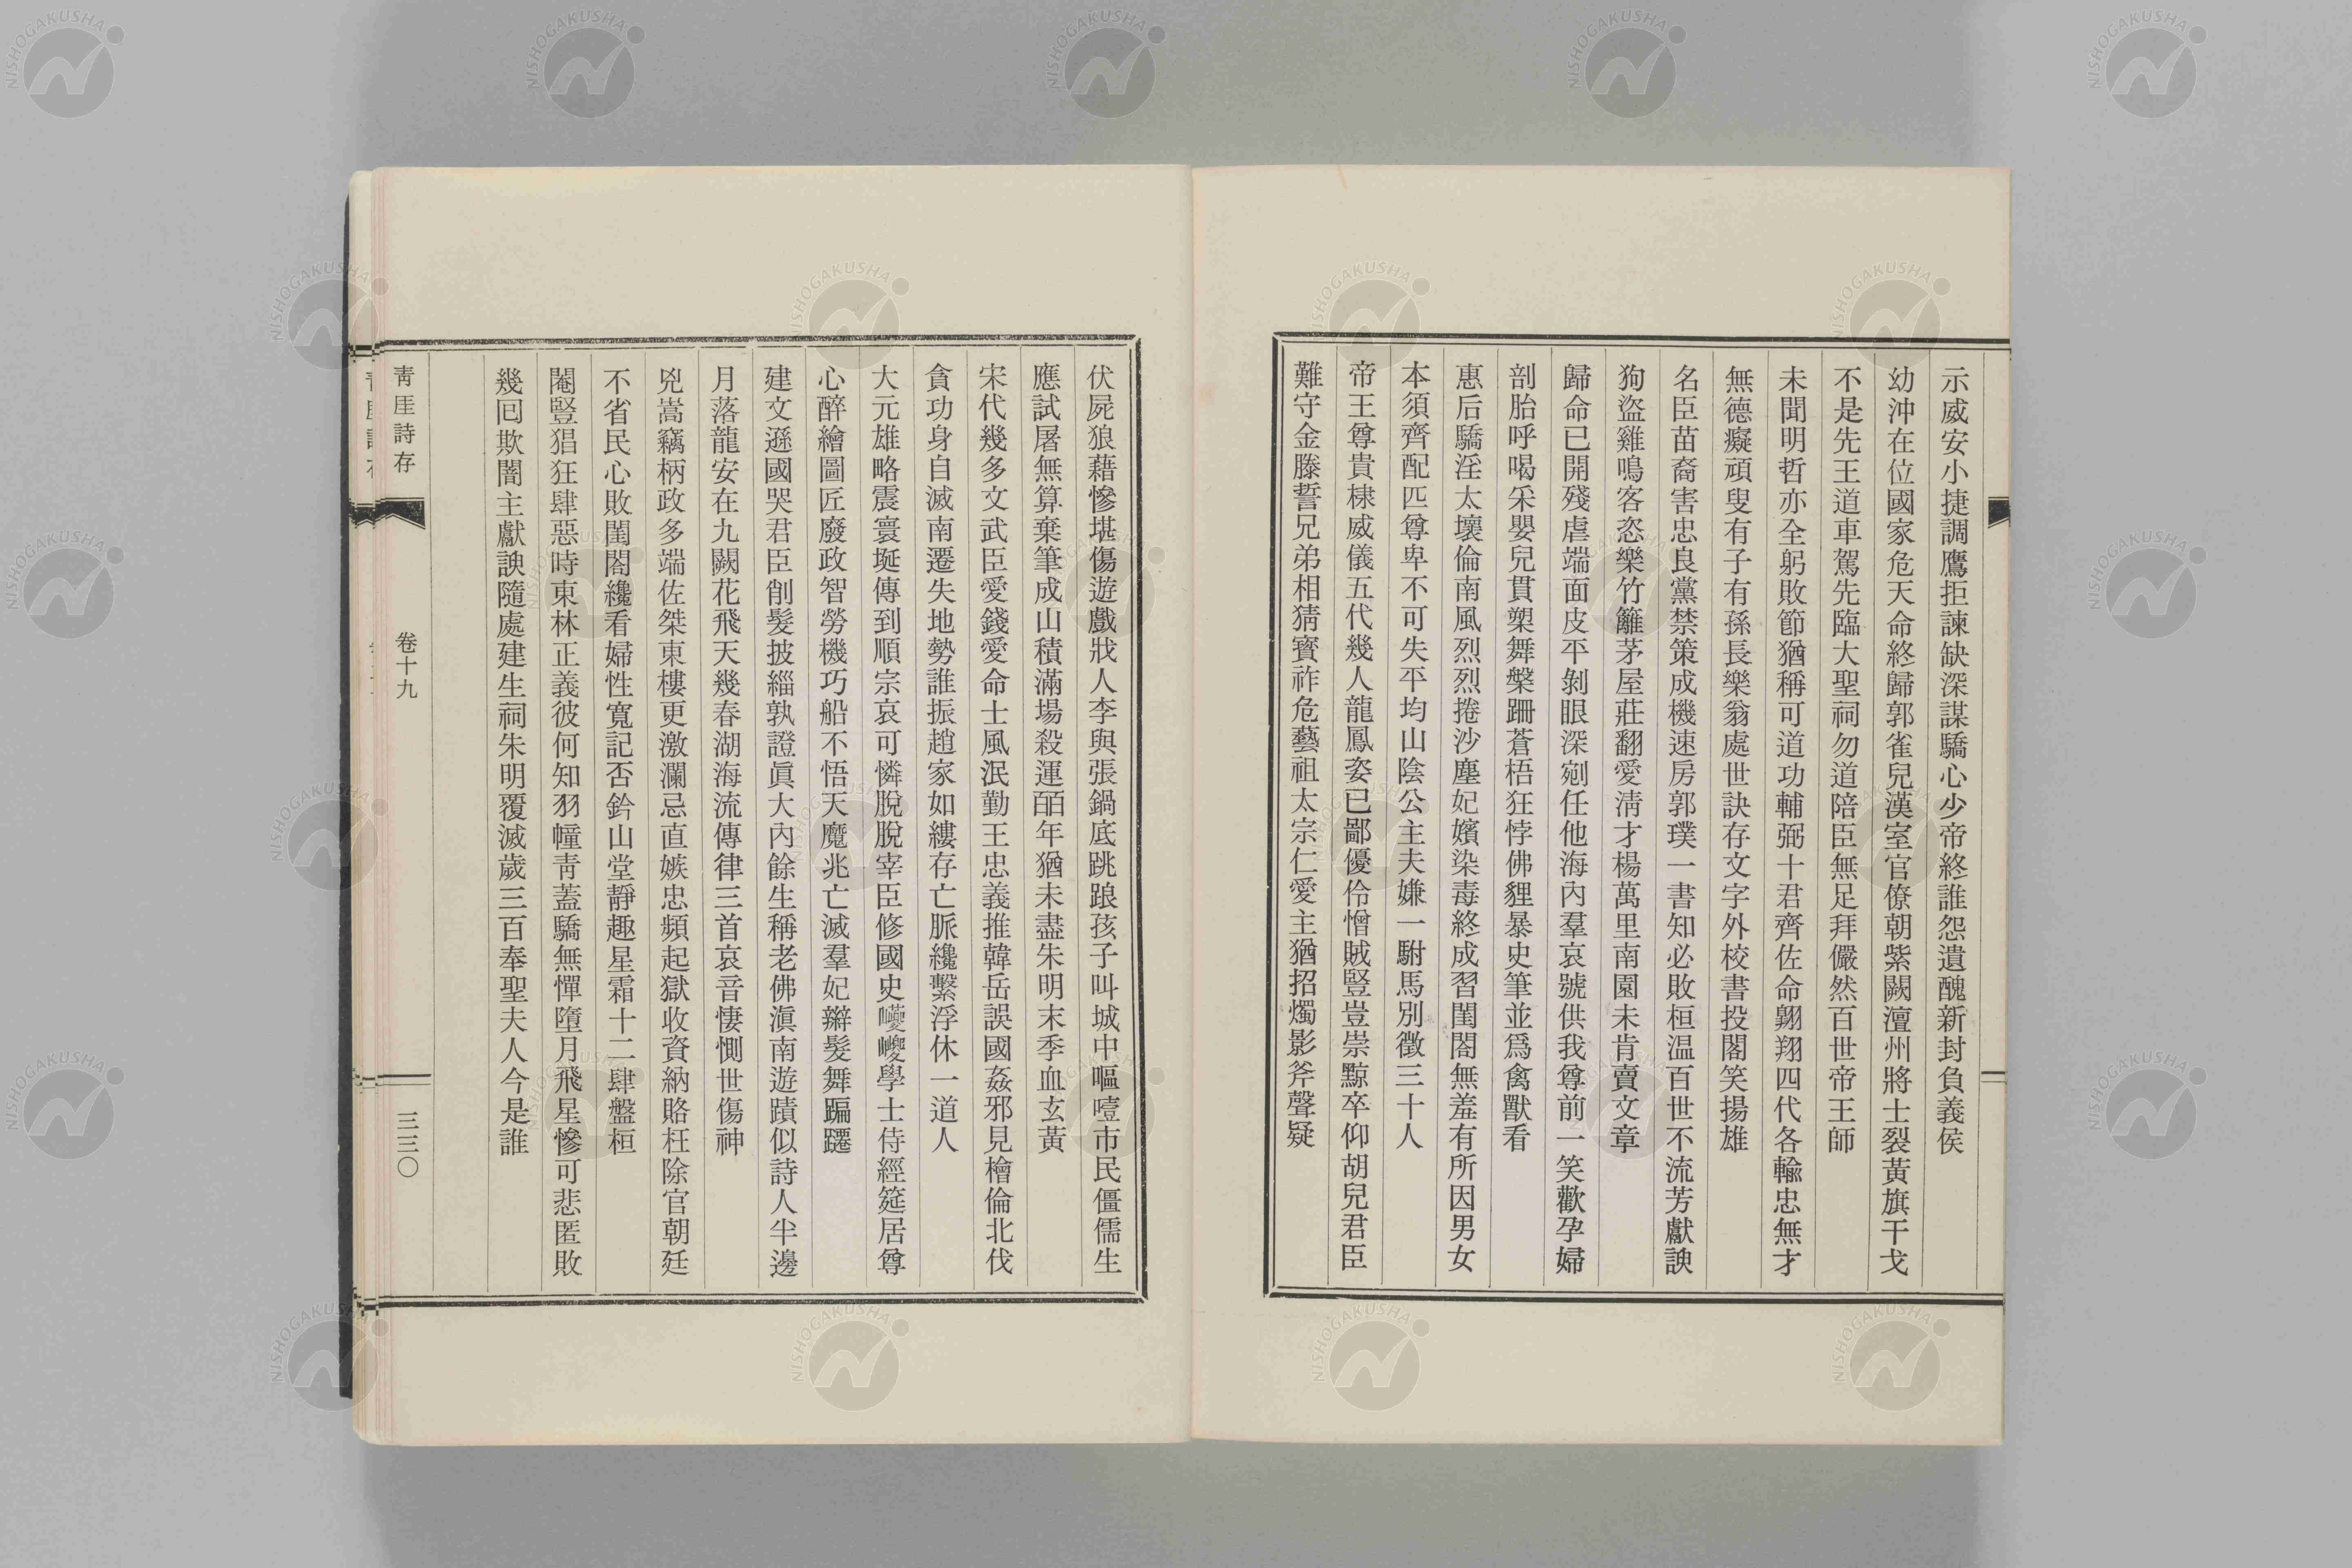 示威安小捷調鷹拒諫缺深謀驕心少帝終誰怨遺醜新封負義侯
幼沖在位國家危天命終歸郭雀兒漢室官僚朝紫闕澶州將士裂黃旗干戈
不是先王道車駕先臨大聖祠勿道陪臣無足拜儼然百世帝王師
未聞明哲亦全躬敗節猶稱可道功輔弼十君齊佐命翺翔四代各輸忠無才
無德癡頑叟有子有孫長樂翁處世訣存文字外校書投閣笑揚雄
名臣苗裔害忠良黨禁策成機速房郭璞一書知必敗桓温百世不流芳獻諛
狗盜雞鳴客恣樂竹籬茅屋莊翻愛淸才楊萬里南園未肯賣文章
歸命已開殘虐端面皮平剝眼深剜任他海內羣哀號供我尊前一笑歡孕婦
剖胎呼喝采嬰兒貫槊舞槃跚蒼梧狂悖佛貍暴史筆並爲禽獸看
惠后驕淫太壞倫南風烈烈捲沙塵妃嬪染毒終成習閨閤無羞有所因男女
本須齊配匹尊卑不可失平均山陰公主夫嫌一駙馬別徵三十人
帝王尊貴棣威儀五代幾人龍鳳姿已鄙優伶憎賊豎豈崇黥卒仰胡兒君臣
難守金縢誓兄弟相猜寶祚危藝祖太宗仁愛主猶招燭影斧聲疑
伏屍狼藉慘堪傷遊戲戕人李與張鍋底跳踉孩子叫城中嘔噎市民僵儒生
應試屠無算棄筆成山積滿場殺運百年猶未盡朱明末季血玄黃
宋代幾多文武臣愛錢愛命士風泯勤王忠義推韓岳誤國姦邪見檜倫北伐
貪功身自滅南遷失地勢誰振趙家如縷存亡脈纔繫浮休一道人
大元雄略震寰埏傳到順宗哀可憐脫脫宰臣修國史巙巙學士侍經筵居尊
心醉繪圖匠廢政智勞機巧船不悟天魔兆亡滅羣妃辮髮舞蹁躚
建文遜國哭君臣削髮披緇孰證眞大內餘生稱老佛滇南遊蹟似詩人半邊
月落龍安在九闕花飛天幾春湖海流傳律三首哀音悽惻世傷神
兇嵩竊柄政多端佐桀東樓更激瀾忌直嫉忠頻起獄收資納賂枉除官朝廷
不省民心敗閨閤纔看婦性寬記否鈐山堂靜趣星霜十二肆盤桓
閹豎猖狂肆惡時東林正義彼何知羽幢靑蓋驕無憚墮月飛星慘可悲匿敗
幾回欺闇主獻諛隨處建生祠朱明覆滅歲三百奉聖夫人今是誰
靑厓詩存
卷十九
三三〇